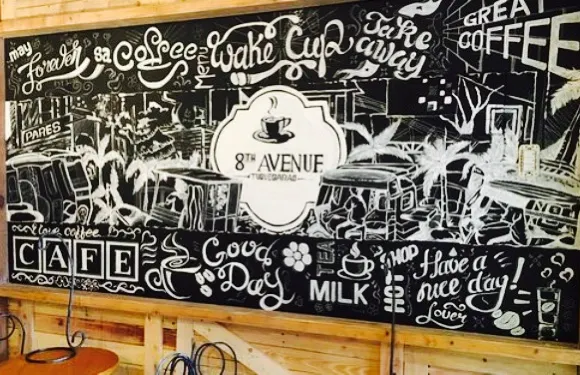 may Forever sa Coffee
Menu
Wake Cup
Take away
GREAT COFFEE
PARES
8TH AVENUE
love coffee
CAFE
Good Day
TEA
MILK
HOT
Have a nice day!
Lover